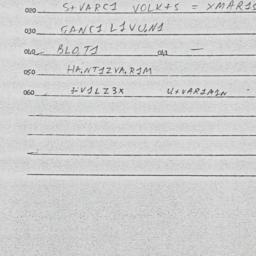 020 S+VARC1 VOLK+S = XMAR1S
030 GANC1 L1VUN1
040 BLOT1 041 —
050 HANT1ZVAR1M
060 U+VAR1A1N